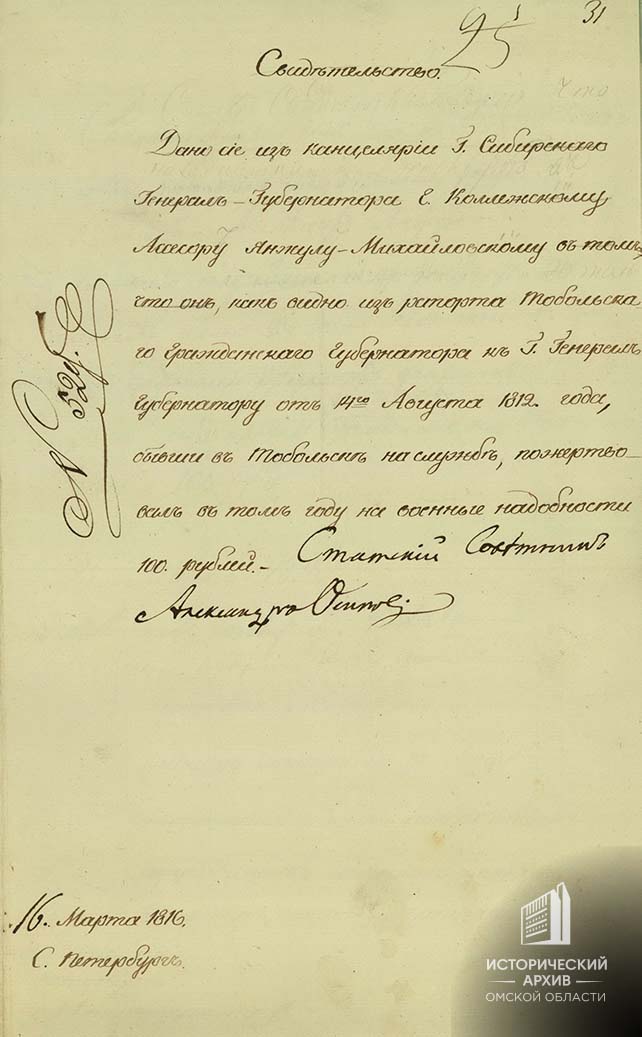 25
31
Свидѣтельство.
Дано сіе изъ канцеляріи Г. Сибирскаго
Генералъ-Губернатора Г. Коллежскому
Асессору Анжулу-Михайловскому въ томъ,
что онъ, какъ видно изъ рапорта Тобольска
го Гражданскаго Губернатора къ Г. Генералъ
Губернатору отъ 14го Августа 1812. года,
бывши въ Тобольскѣ на службѣ, пожертво-
валъ въ томъ году на военные надобности
100. рублей.- Статскій Совѣтникъ
Александръ Осиповъ
N 529.
16. Марта 1816.
С. Петербургъ.
ИСТОРИЧЕСКИЙ
АРХИВ
ОМСКОЙ ОБЛАСТИ